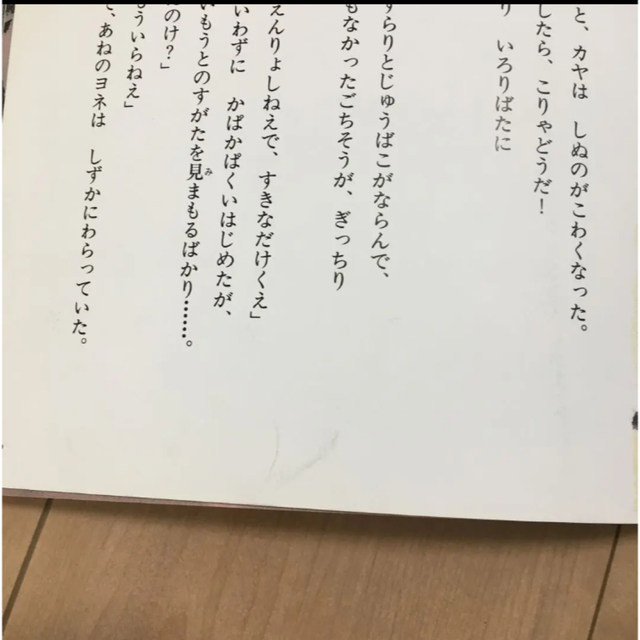 と、カヤは しぬのがこわくなった。
したら、こりゃどうだ！
り いろりばたに
ずらりとじゅうばこがならんで、
もなかったごちそうが、ぎっちり
えんりょしねえで、すきなだけくえ」
いわずに かぱかぱくいはじめたが、
いもうとのすがたを見まもるばかり……。
のけ？」
もういらねえ」
、あねのヨネは しずかにわらっていた。